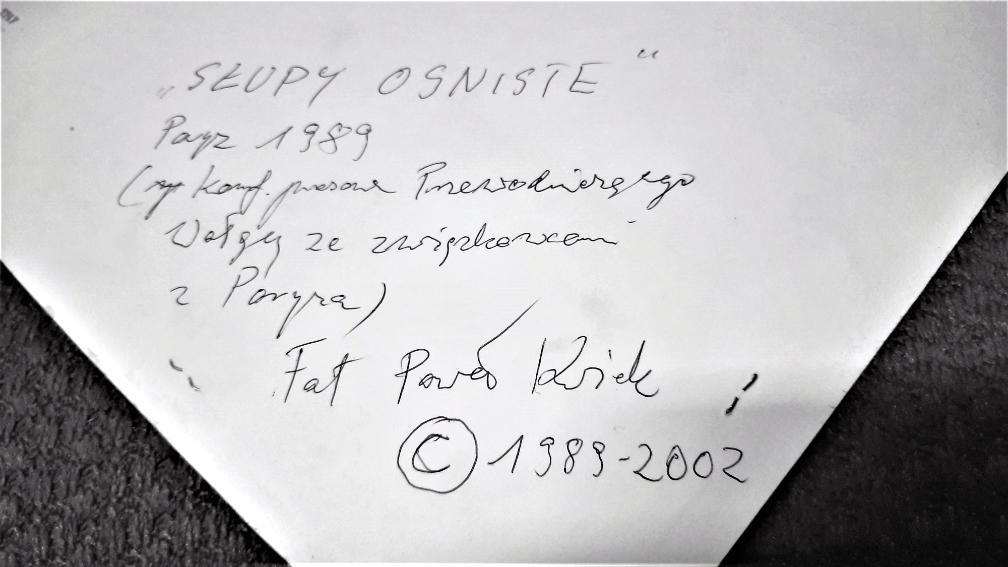 „SŁUPY OGNISTE"
Paryż 1989
konf. prasowa Przewodniczącego
Wałęsy ze związkowcami
z Paryża)
Fot Paweł Kwiek
© 1989-2002